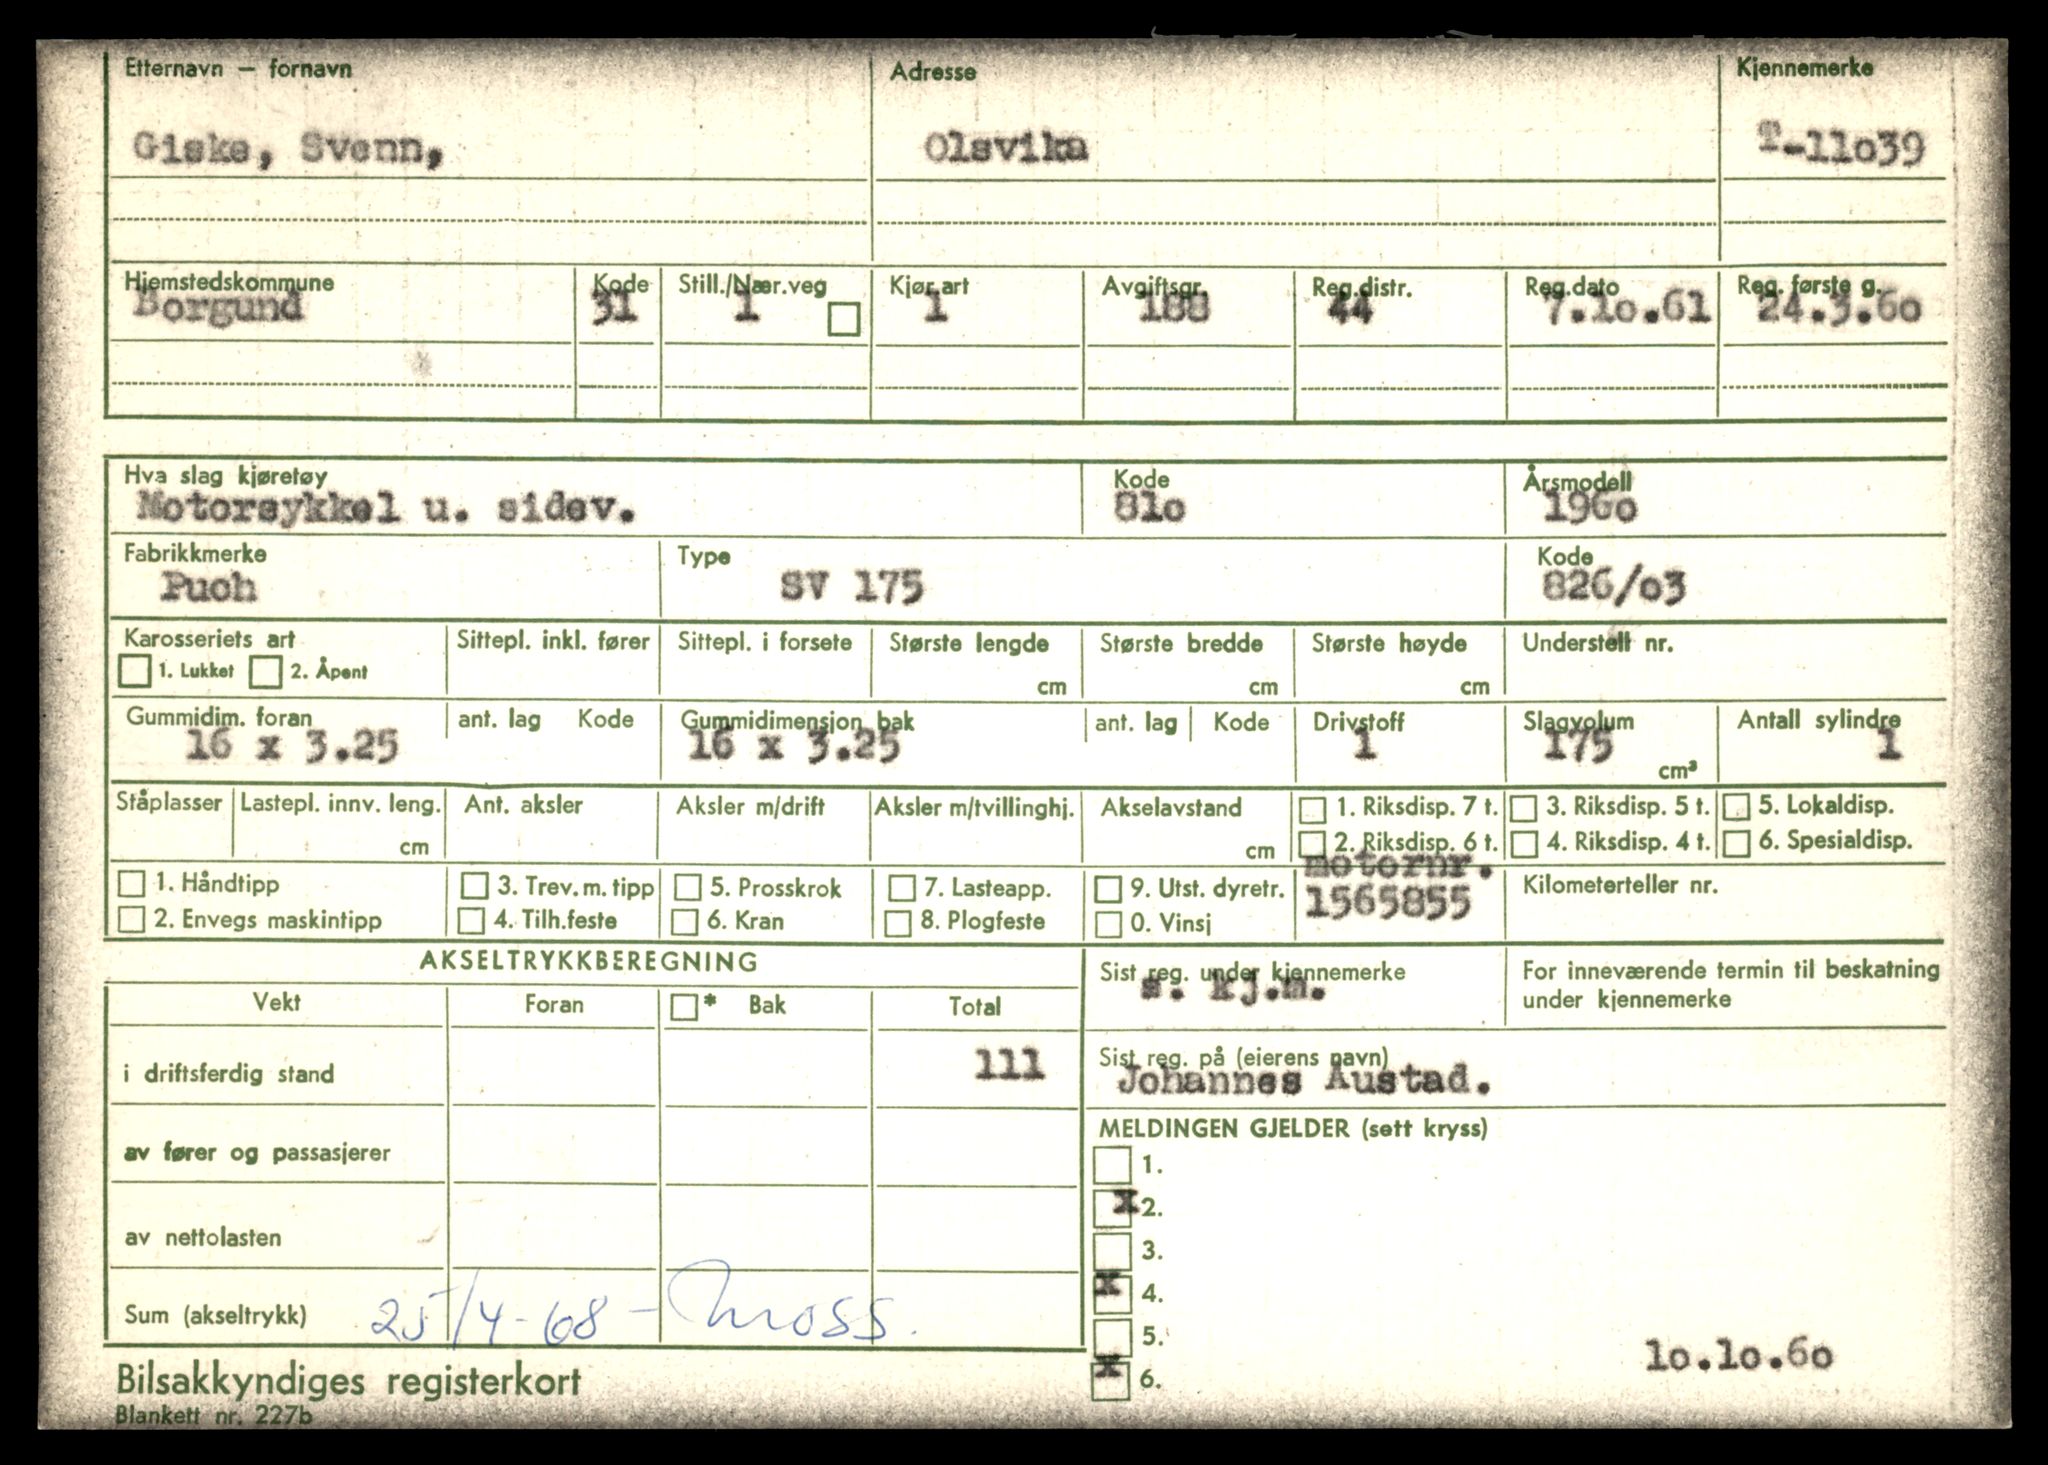 Etternavn – fornavn Adresse Kjennemerke
Giske, Svenn, Olsvika T-11o39
Hjemstedskommune Kode Still./Nær.veg Kjør.art Avgiftsgr. Reg.distr. Reg.dato Reg. første g.
Borgund 31 1 1 188 44 7.1o.61 24.3.6o
Hva slag kjøretøy Kode Årsmodell
Motorsykkel u. sidev. 81o 196o
Fabrikkmerke Type Kode
Puch SV 175 826/o3
Karosseriets art Sittepl. inkl. fører Sittepl. i forsete Største lengde Største bredde Største høyde Understell nr.
1. Lukket 2. Åpent cm cm cm
Gummidim. foran ant. lag Kode Gummidimensjon bak ant. lag Kode Drivstoff Slagvolum Antall sylindre
16 x 3.25 16 x 3.25 1 175 cm³ 1
Ståplasser Lastepl. innv. leng. Ant. aksler Aksler m/drift Aksler m/tvillinghj. Akselavstand 1. Riksdisp. 7 t. 3. Riksdisp. 5 t. 5. Lokaldisp.
cm cm 2. Riksdisp. 6 t. 4. Riksdisp. 4 t. 6. Spesialdisp.
motornr.
1. Håndtipp 3. Trev. m. tipp 5. Prosskrok 7. Lasteapp. 9. Utst. dyretr. 1565855 Kilometerteller nr.
2. Envegs maskintipp 4. Tilh.feste 6. Kran 8. Plogfeste 0. Vinsj
AKSELTRYKKBEREGNING Sist reg. under kjennemerke For inneværende termin til beskatning
s. kj.m. under kjennemerke
Vekt Foran * Bak Total
i driftsferdig stand 111
Sist reg. på (eierens navn)
Johannes Austad.
av fører og passasjerer
MELDINGEN GJELDER (sett kryss)
1.
x 2.
av nettolasten
3.
x 4.
Sum (akseltrykk) 25/4-68 - Moss.
5.
x 6. 1o.1o.6o
Bilsakkyndiges registerkort
Blankett nr. 227b